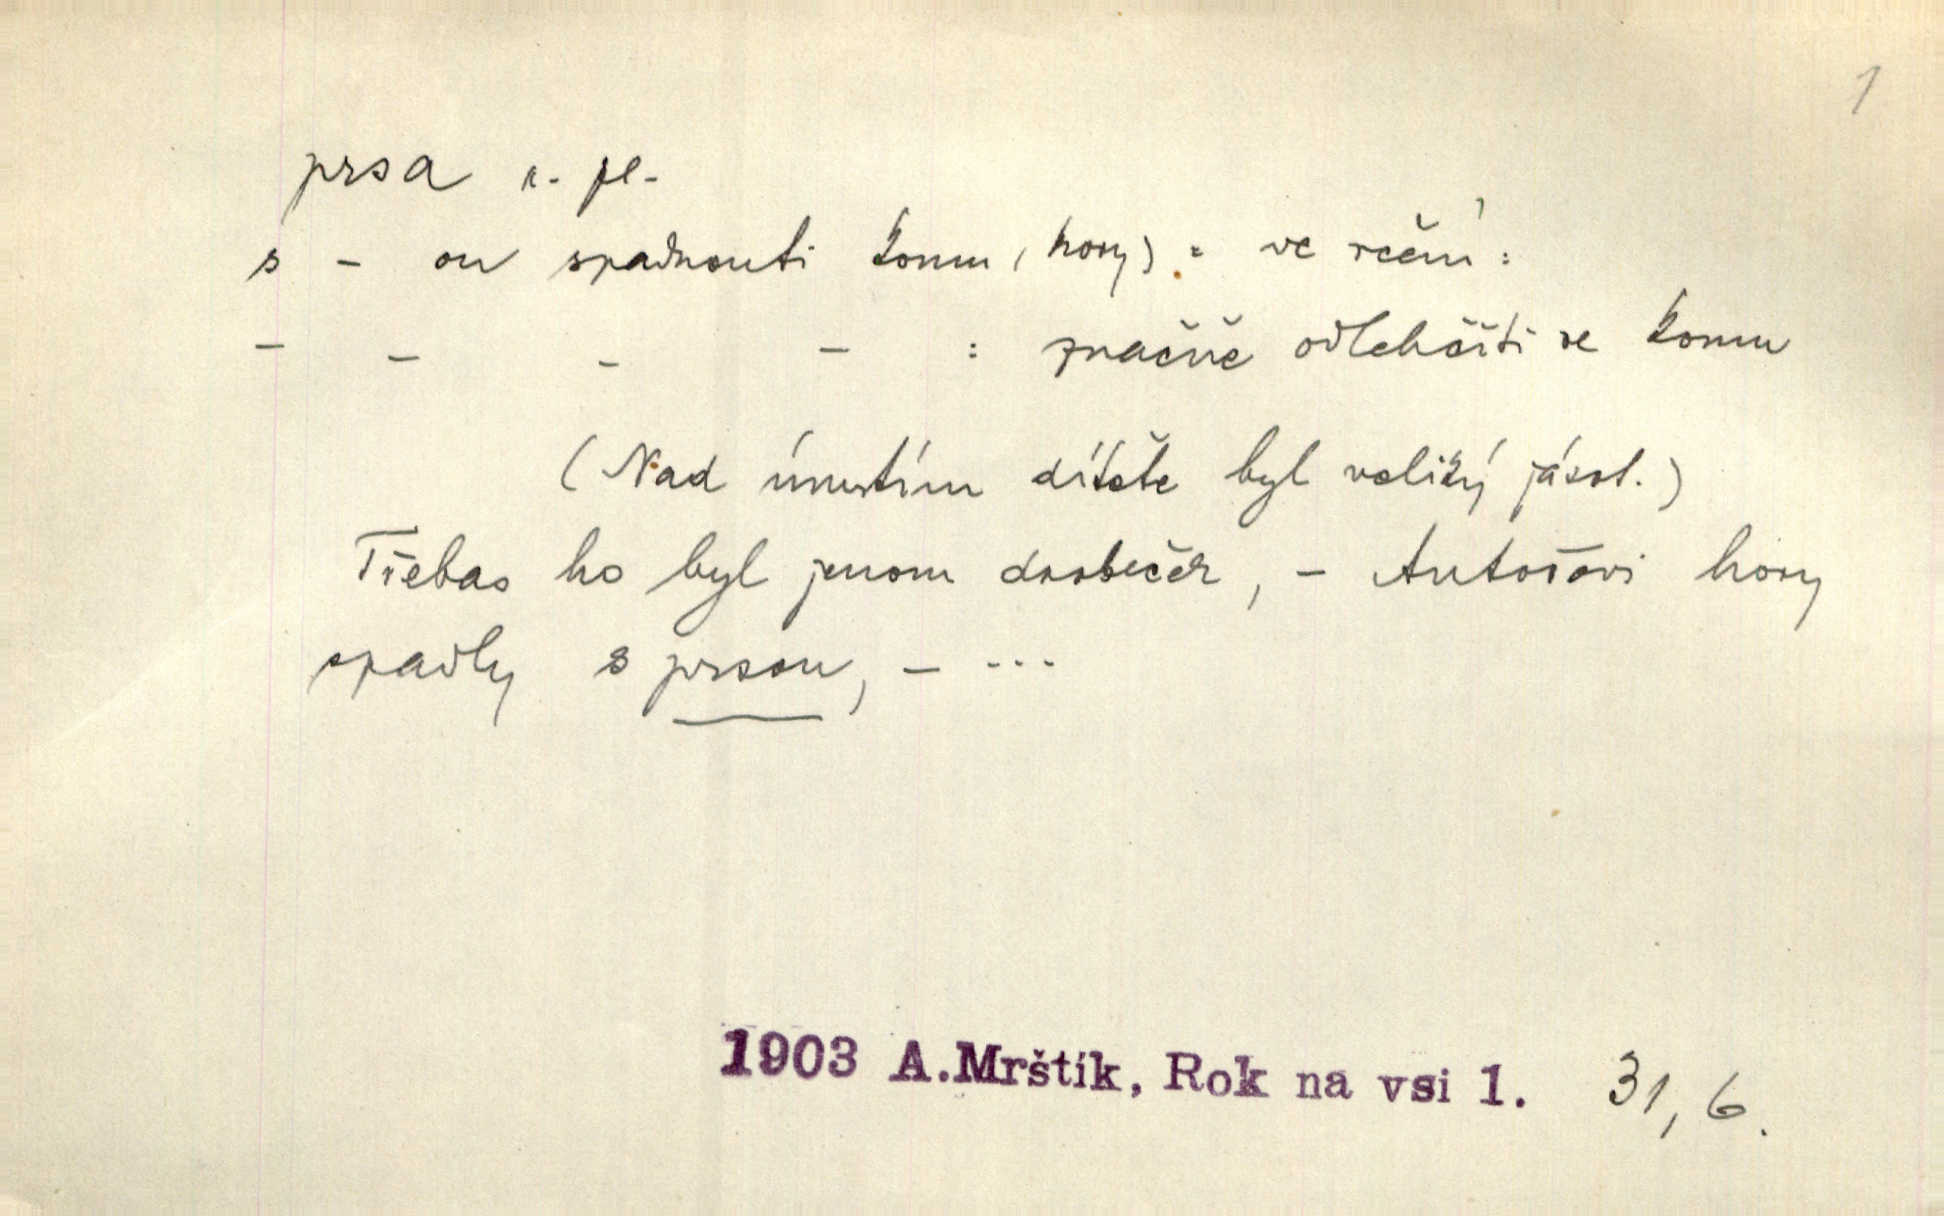 1
prsa n. pl.
s – ou spadnouti komu (hory) : ve rčení :
– – – – : značně odlehčiti se komu
(Nad úmrtím dítěte byl veliký jásot.)
Třebas ho byl jenom drobeček, – Antošovi hory
spadly s prsou, – ...
1903 A.Mrštík, Rok na vsi 1. 31, 6.